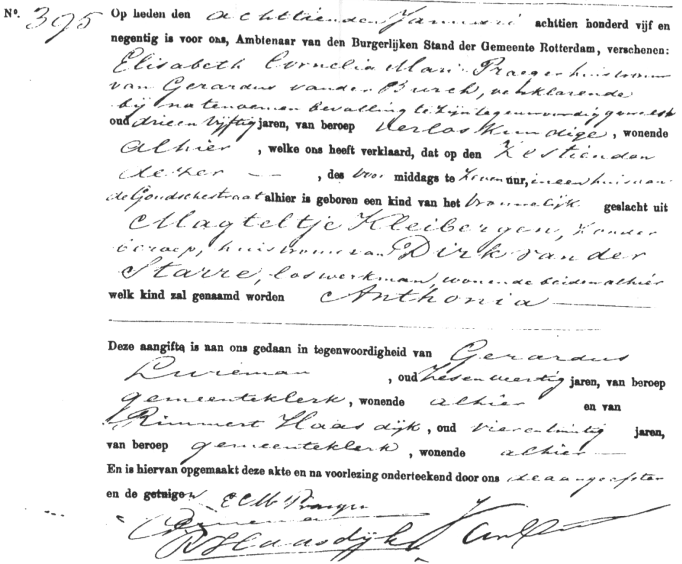 No. 395 Op heden den achttienden Januari achttien honderd vijf en
negentig is voor ons, Ambtenaar van den Burgerlijken Stand der Gemeente Rotterdam, verschenen:
Elisabeth Cornelia Mari Praeger huisvrouw
van Gerardus van der Burch, verklarende
bij na tenoemen bevalling te zijn tegenwoordig geweest
oud drie en vijftig jaren, van beroep verloskundige, wonende
alhier, welke ons heeft verklaard, dat op den zestienden
dezer, des voor middags te zeven uur, in een huis aan
de Goudschestraat alhier is geboren een kind van het vrouwelijk geslacht uit
Magteltje Kleibergen, zonder
beroep, huisvrouw van Dirk van der
Starre, loswerkman, wonende beiden alhier
welk kind zal genaamd worden Anthonia
Deze aangifte is aan ons gedaan in tegenwoordigheid van Gerardus
, oud zes en veertig jaren, van beroep
gemeenteklerk, wonende alhier en van
Rimmert Haasdijk, oud vier en twintig jaren,
van beroep gemeenteklerk, wonende alhier
En is hiervan opgemaakt deze akte en na voorlezing onderteekend door ons de aangeefster
en de getuigen
RHaasdijk